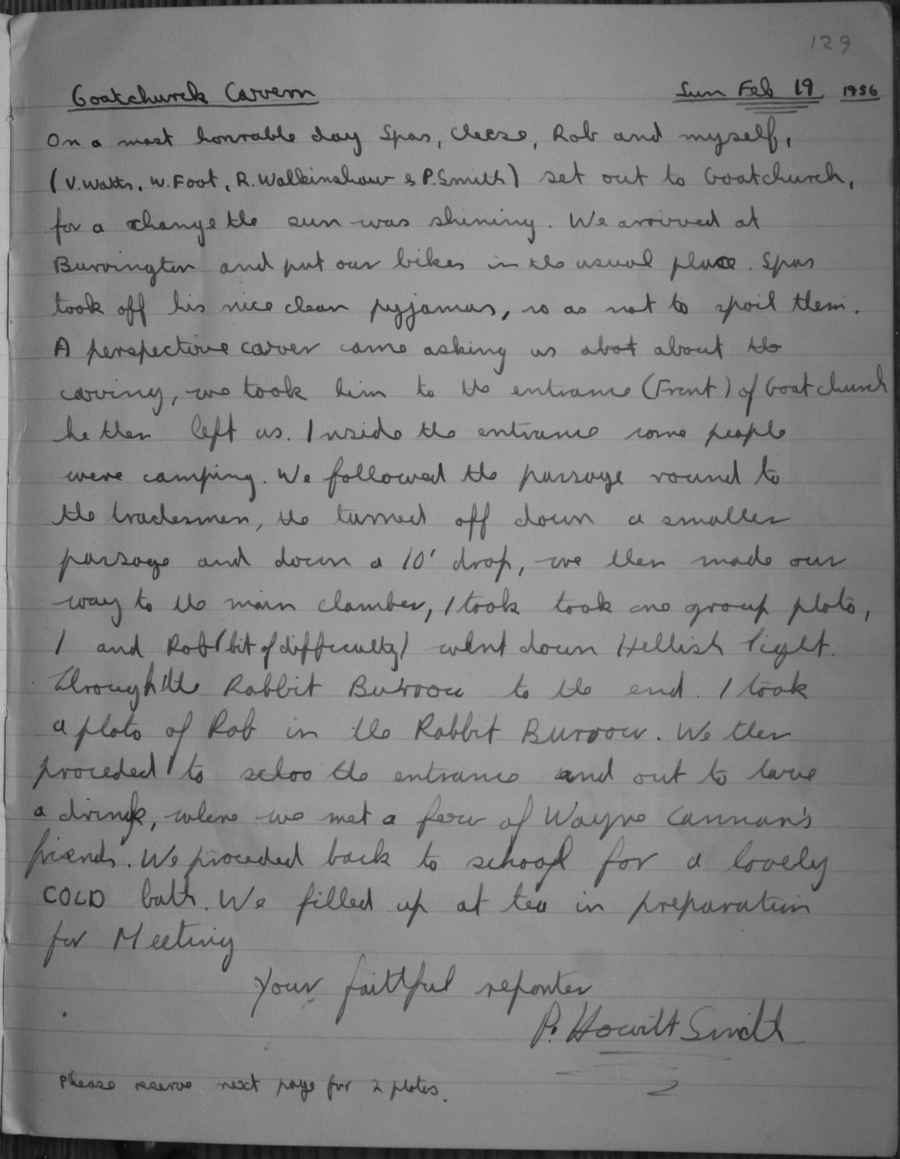 129
Goatchurch Cavern Sun Feb 19 1956
On a most honrable day Spas, Cheese, Rob and myself,
(V.Watts, W.Foot, R.Walkinshaw & P.Smith) set out to Goatchurch,
for a change the sun was shining. We arrived at
Burrington and put our bikes in the usual place. Spas
took off his nice clean pyjamas, so as not to spoil them.
A perspective caver came asking us abot about the
caving, we took him to the entrance (Front) of Goatchurch
he then left us. Inside the entrance some people
were camping. We followed the passage round to
the tradesmen, the turned off down a smaller
passage and down a 10' drop, we then made our
way to the main chamber, I took took one group photo,
I and Rob (bit of difficulty) went down Hellish Tight.
Through the Rabbit Burrow to the end. I took
a photo of Rob in the Rabbit Burrow. We then
proceded to the entrance and out to have
a drink, where we met a few of Wayne Cannan's
friends. We proceded back to school for a lovely
COLD bath. We filled up at tea in preparation
for Meeting
Your faithful reporter
P. Howitt Smith
Please reserve next page for 2 photos.